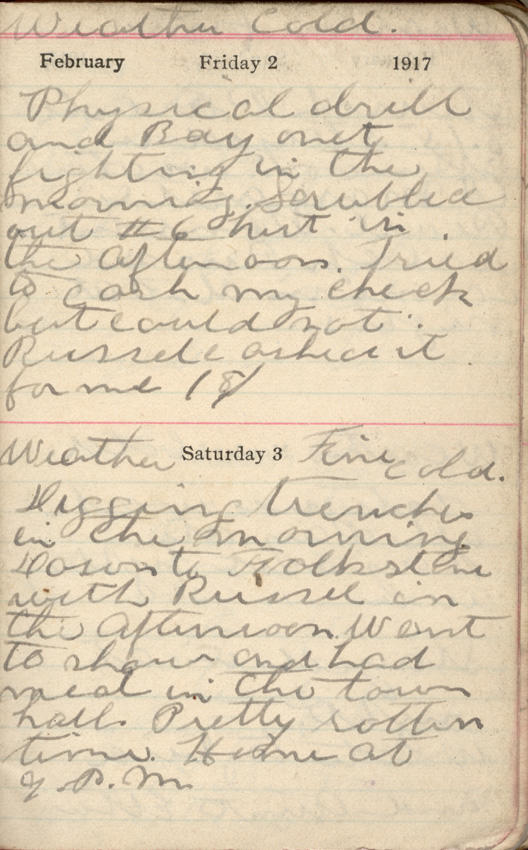 Weather Cold.
February Friday 2 1917
Physical drill
and Bayonet
fighting in the
morning. Scrubbed
out #6 hut in
the afternoon. Tried
to cash my check
but could not.
Russell cashed it
for me
Weather Saturday 3 Fine cold.
Digging trenches
in the morning
Down to Folkstone
with Russel in
the afternoon. Went
to show and had
meal in the town
hall. Pretty rotten
time. Home at
9.P.M.